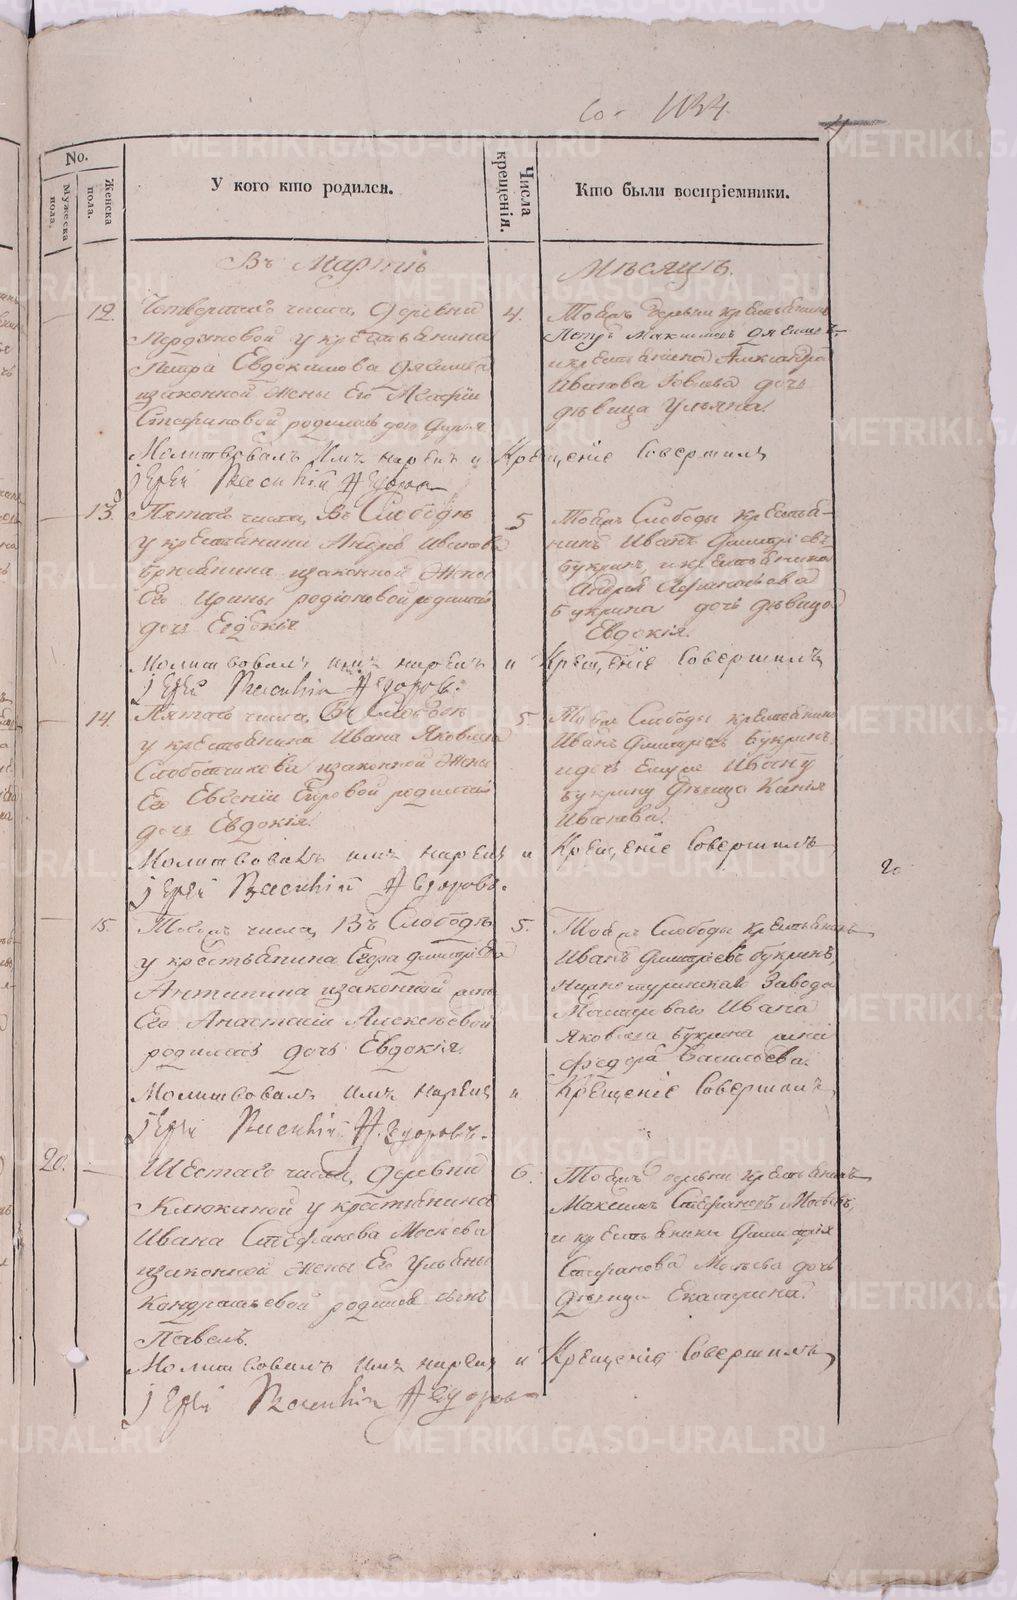 1134
4
No.
Мужеска пола.
Женска пола.
У кого кто родился.
Числа крещенія.
Кто были воспріемники.
Въ Мартѣ
Мѣсяцѣ.
12.
Четвертаго числа, деревни
у крестьянина
Петра Евдокимова
изаконной жены Его Агафіи
Стефановой родилась дочь Дарья
4.
Тойже деревни крестьянинъ
Петръ Максимовъ
икрестьянина Александра
Иванова дочь
дѣвица Ульяна.
Молитвовалъ имя нарекъ и Крещеніе Совершилъ
іерей Василій Федоровъ
13.
Пятаго числа, Въ Слободѣ
у крестьянина Андрея Иванова
изаконной Жены
Его Ирины родіоновой родилась
дочь Евдокія
5
Тойже Слободы крестья-
нинъ Иванъ Димитріевъ
Букринъ, икрестьянина
Андрея
Букрина дочь дѣвица
Евдокія.
Молитвовалъ имя нарекъ и Крещеніе Совершилъ
іерей Василій Федоровъ.
14.
Пятаго числа, Въ Слободѣ
у крестьянина Ивана Яковлева
Слободчикова изаконной Жены
Его Евгеніи Егоровой родилась
дочь Евдокія.
5.
Тойже Слободы крестьянинъ
Иванъ Димитріевъ Букринъ
идочь Ивану
Букрину дѣвица
Иванова.
Молитвовалъ имя нарекъ и Крещеніе Совершилъ
іерей Василій Федоровъ.
20
15.
Тогоже числа, Въ Слободѣ
у крестьянина Егора Димитріева
Антипина изаконной жены
Его Анастасіи Алексѣевой
родилась дочь Евдокія.
5.
Тойже Слободы крестьянинъ
Иванъ Димитріевъ Букринъ,
Нижнетуринскаго Завода
Мастероваго Ивана
Яковлева Букрина жена
Федора Васильева.
Молитвовалъ имя нарекъ и Крещеніе Совершилъ
іерей Василій Федоровъ.
20.
Шестаго числа, деревни
Клюкиной у крестьянина
Ивана Стефанова Мосѣева
изаконной жены Его Ульяны
Кондратьевой родился сынъ
Павелъ.
6.
Тойже деревни крестьянинъ
Максимъ Стефановъ Мосѣевъ,
и крестьянина Димитрія
Стефанова Мосѣева дочь
дѣвица Екатерина.
Молитвовалъ имя нарекъ и Крещеніе Совершилъ
іерей Василій Федоровъ
METRIKI.GASO-URAL.RU